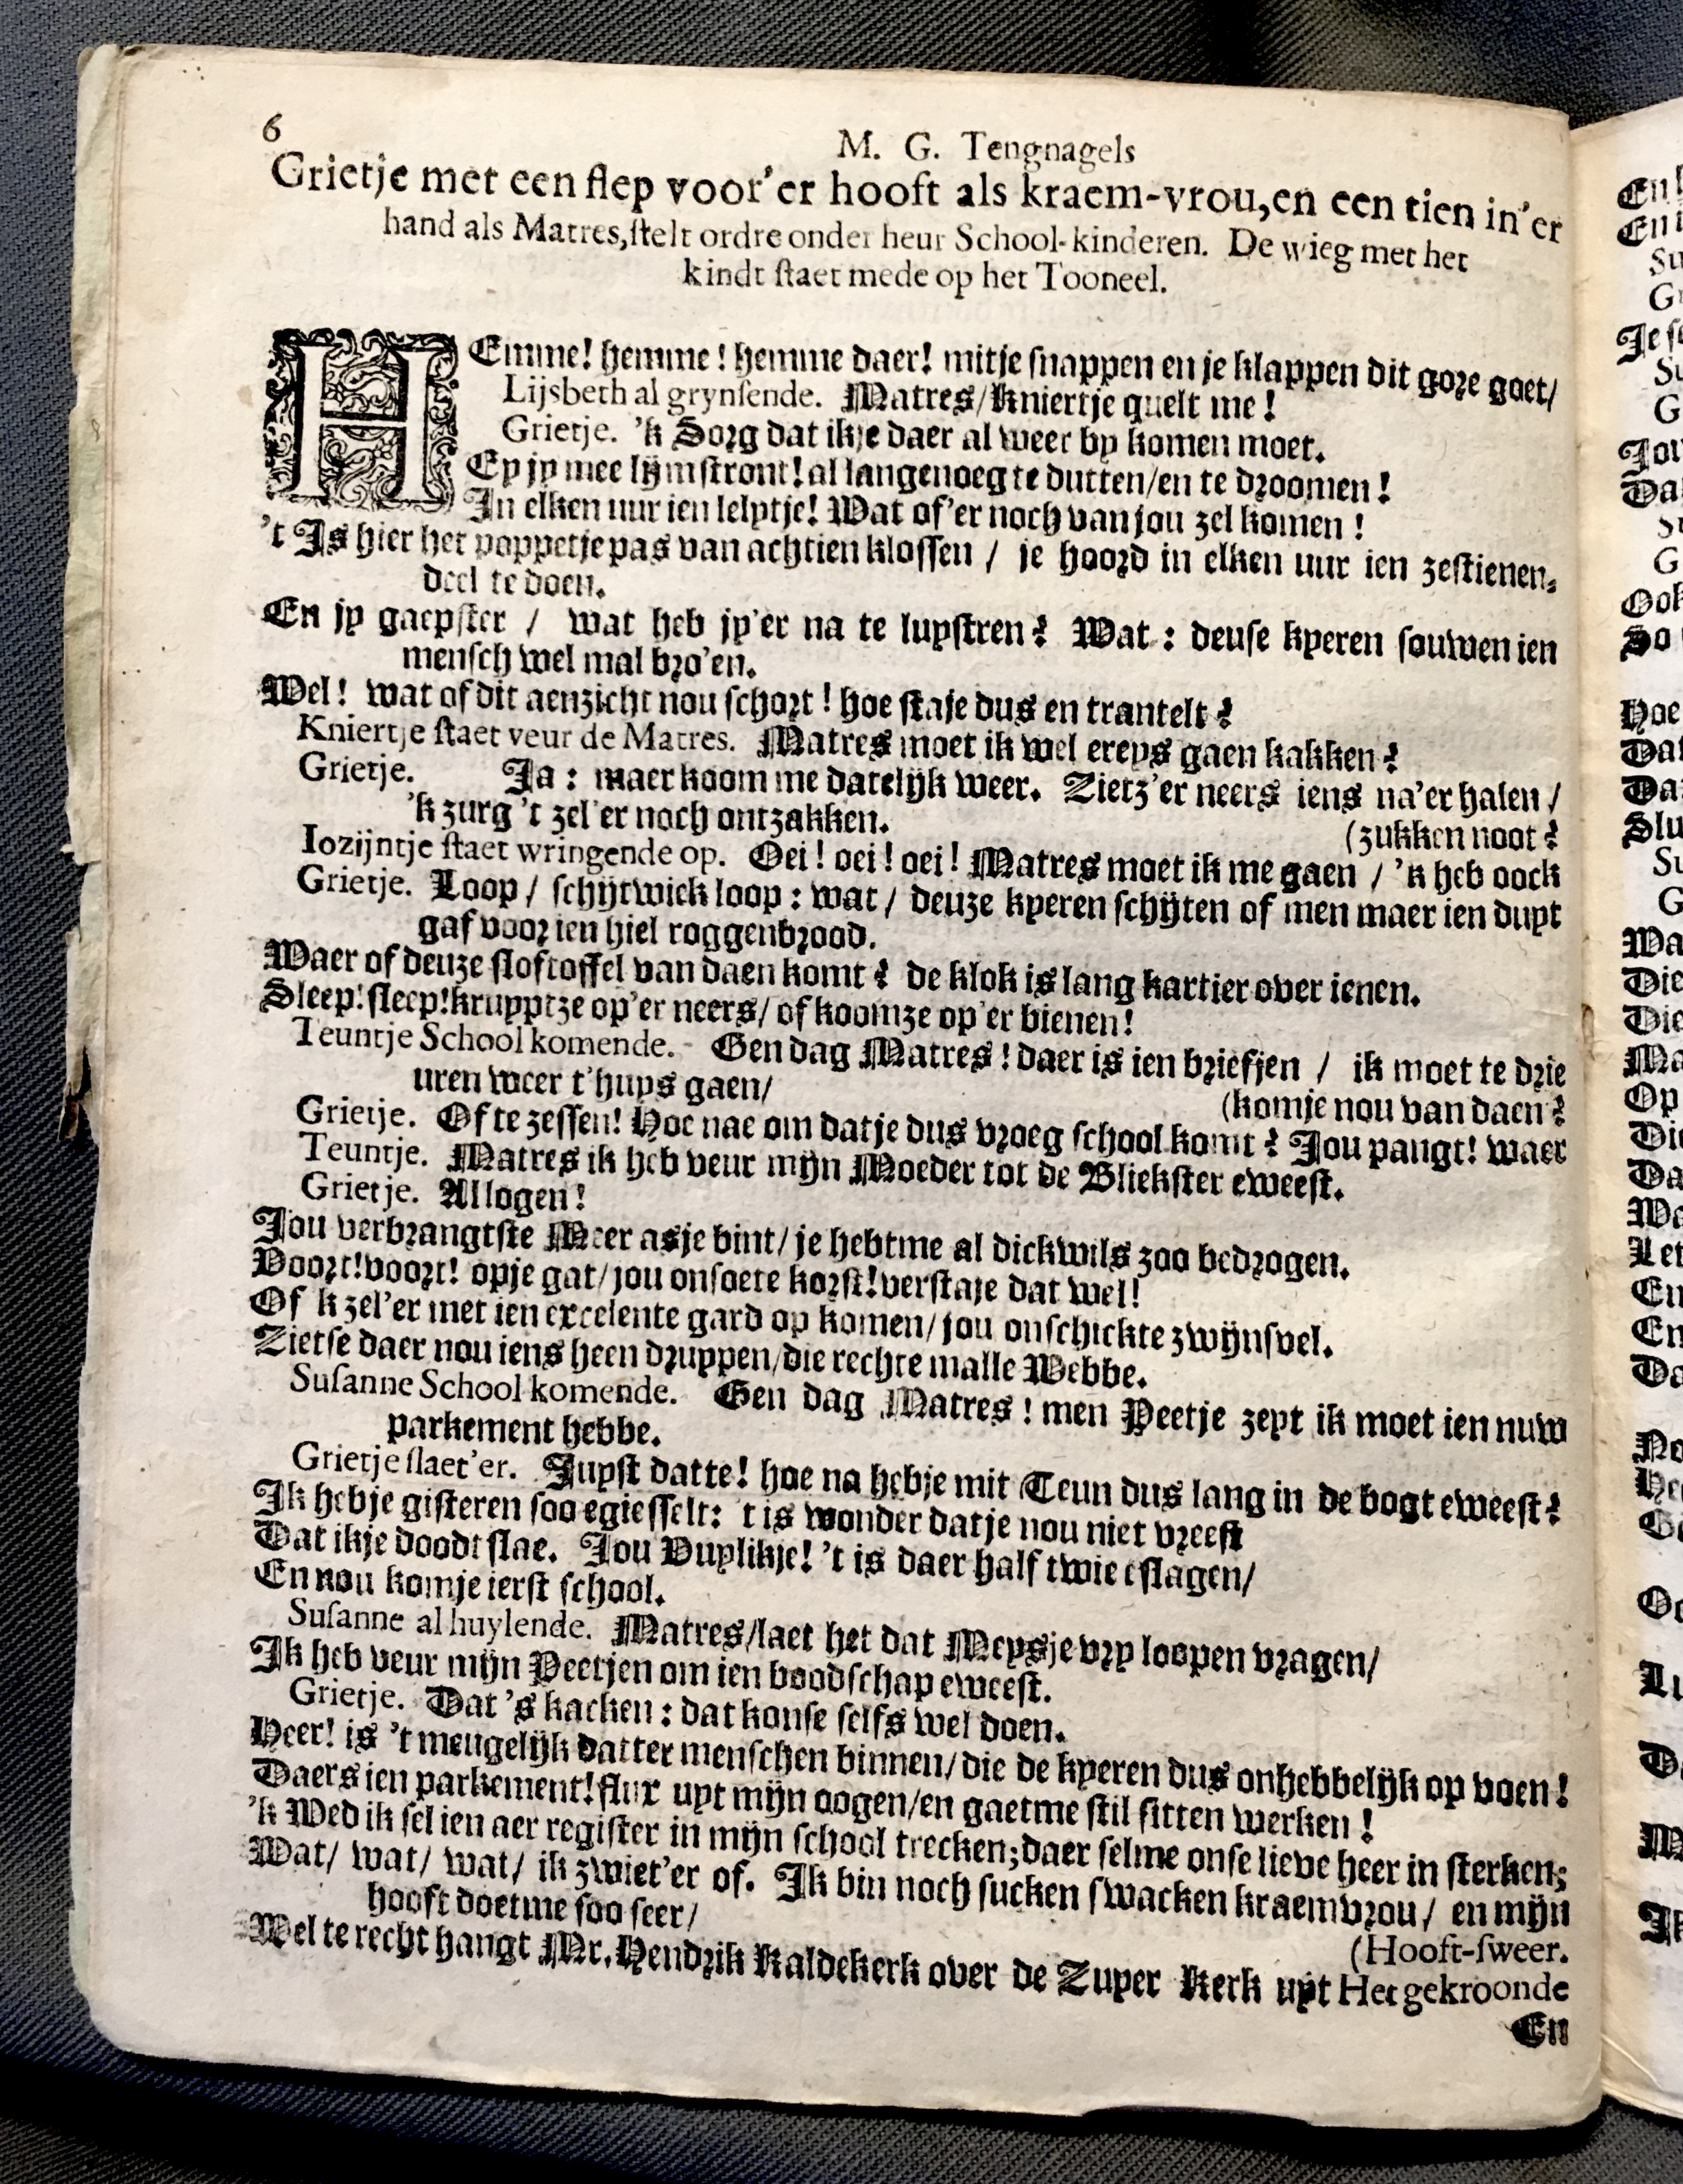 6
M. G. Tengnagels
Grietje met een slep voor'er hooft als kraem-vrou, en een tien in'er
hand als Matres, stelt ordre onder heur School-kinderen. De wieg met het
kindt staet mede op het Tooneel.
HEmme! hemme! hemme daer! mitje snappen en je klappen dit gore goet/
Lijsbeth al grynsende. Matres/ Kniertje quelt me!
Grietje. 'k Sorg dat ikje daer al weer by komen moet.
Ey jy mee lijmstront! al langenoeg te dutten/ en te droomen!
In elken uur ien lelytje! Wat of'er noch van jou zel komen!
't Is hier het poppetje pas van achtien klossen / je hoord in elken uur ien zestienen-
deel te doen.
En jy gaepster / wat heb jy'er na te luystren? Wat : deuse kyeren souwen ien
mensch wel mal bro'en.
Wel! wat of dit aenzicht nou schort! hoe staje dus en trantelt?
Kniertje staet veur de Matres. Matres moet ik wel ereys gaen kakken?
Grietje. Ja : maer koom me datelijk weer. Zietz'er neers iens na'er halen /
'k zurg 't zel'er noch ontzakken.
(zukken noot?
Iozijntje staet wringende op. Oei! oei! oei! Matres moet ik me gaen / 'k heb oock
Grietje. Loop / schijtwiek loop : wat / deuze kyeren schijten of men maer ien duyt
gaf voor ien hiel roggenbrood.
Waer of deuze sloftoffel van daen komt? de klok is lang kartier over ienen.
Sleep! sleep! kruyptze op'er neers/ of koomze op'er bienen!
Teuntje School komende. Gen dag Matres! daer is ien briefjen / ik moet te drie
uren weer t'huys gaen/
(komje nou van daen?
Grietje. Of te zessen! Hoe nae om datje dus vroeg school komt? Jou pangt! waer
Teuntje. Matres ik heb veur mijn Moeder tot de Bliekster eweest.
Grietje. Allogen!
Jou verbrangtste Meer asje bint/ je hebtme al dickwils zoo bedrogen.
Voort! voort! opje gat/ jou onsoete korst! verstaje dat wel!
Of k zel'er met ien excelente gard op komen/ jou onschickte zwijnsvel.
Zietse daer nou iens heen druppen/ die rechte malle Webbe.
Susanne School komende. Gen dag Matres! men Peetje zeyt ik moet ien nuw
parkement hebbe.
Grietje slaet'er. Juyst datte! hoe na hebje mit Teun dus lang in de bogt eweest?
Ik hebje gisteren soo egiesselt: t is wonder datje nou niet vreest
Dat ikje doodt slae. Jou Vuylikje! 't is daer half twie eslagen/
En nou komje ierst school.
Susanne al huylende. Matres/ laet het dat Meysje vry loopen vragen/
Ik heb veur mijn Peetjen om ien boodschap eweest.
Grietje. Dat 's kacken : dat konse selfs wel doen.
Heer! is 't meugelijk datter menschen binnen/ die de kyeren dus onhebbelijk op voen!
Daers ien parkement! flux uyt mijn oogen/ en gaetme stil sitten werken!
'k Wed ik sel ien aer register in mijn school trecken; daer selme onse lieve heer in sterken;
Wat/ wat/ wat/ ik zwiet'er of. Ik bin noch sucken swacken kraemvrou / en mijn
hooft doetme soo seer/
(Hooft-sweer.
Wel te recht hangt Mr. Hendrik Kaldekerk over de Zuyer Kerk uyt Het gekroonde
En